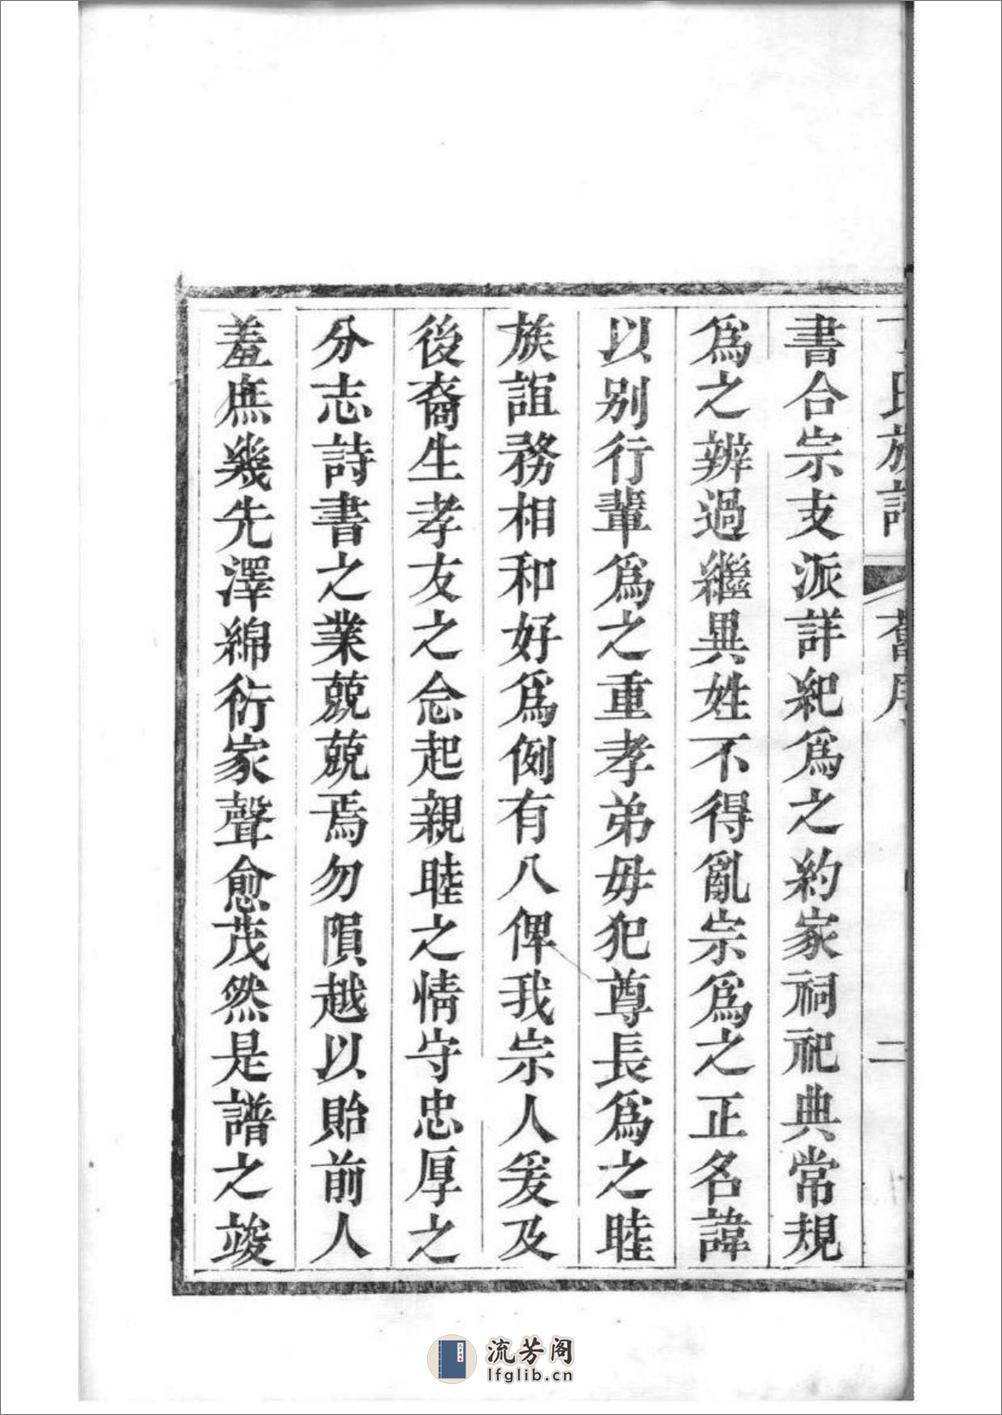 氏族譜 舊序 二
書合宗支派詳紀為之約家祠祀典常規
為之辨過繼異姓不得亂宗為之正名諱
以别行輩為之重孝弟毋犯尊長為之睦
族誼務相和好為例有八俾我宗人爰及
後裔生孝友之念起親睦之情守忠厚之
分志詩書之業兢兢焉勿隕越以貽前人
羞庶幾先澤綿衍家聲愈茂然是譜之竣
流芳阁
lfglib.cn